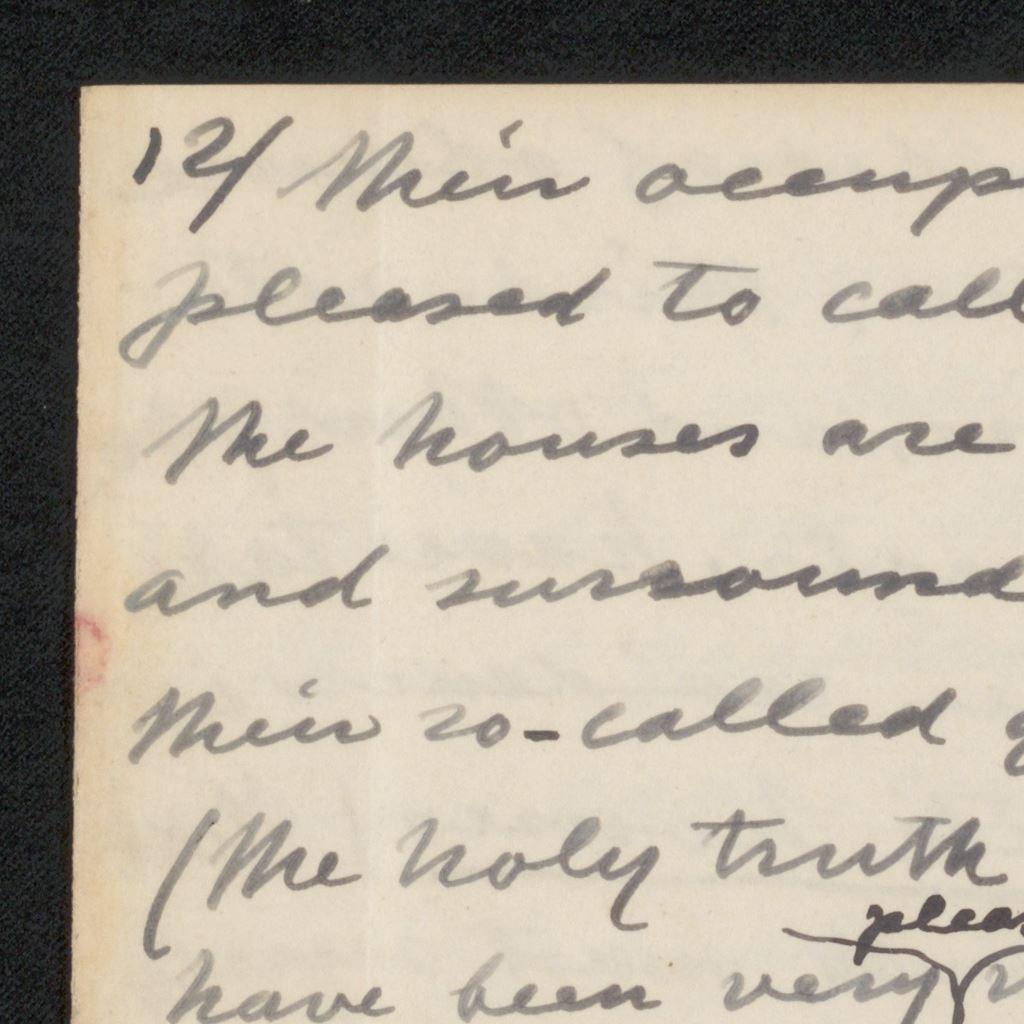 12/ Their occup
pleased to call
the houses are
and surround
their so-called g
(the holy truth
pleas
have been very